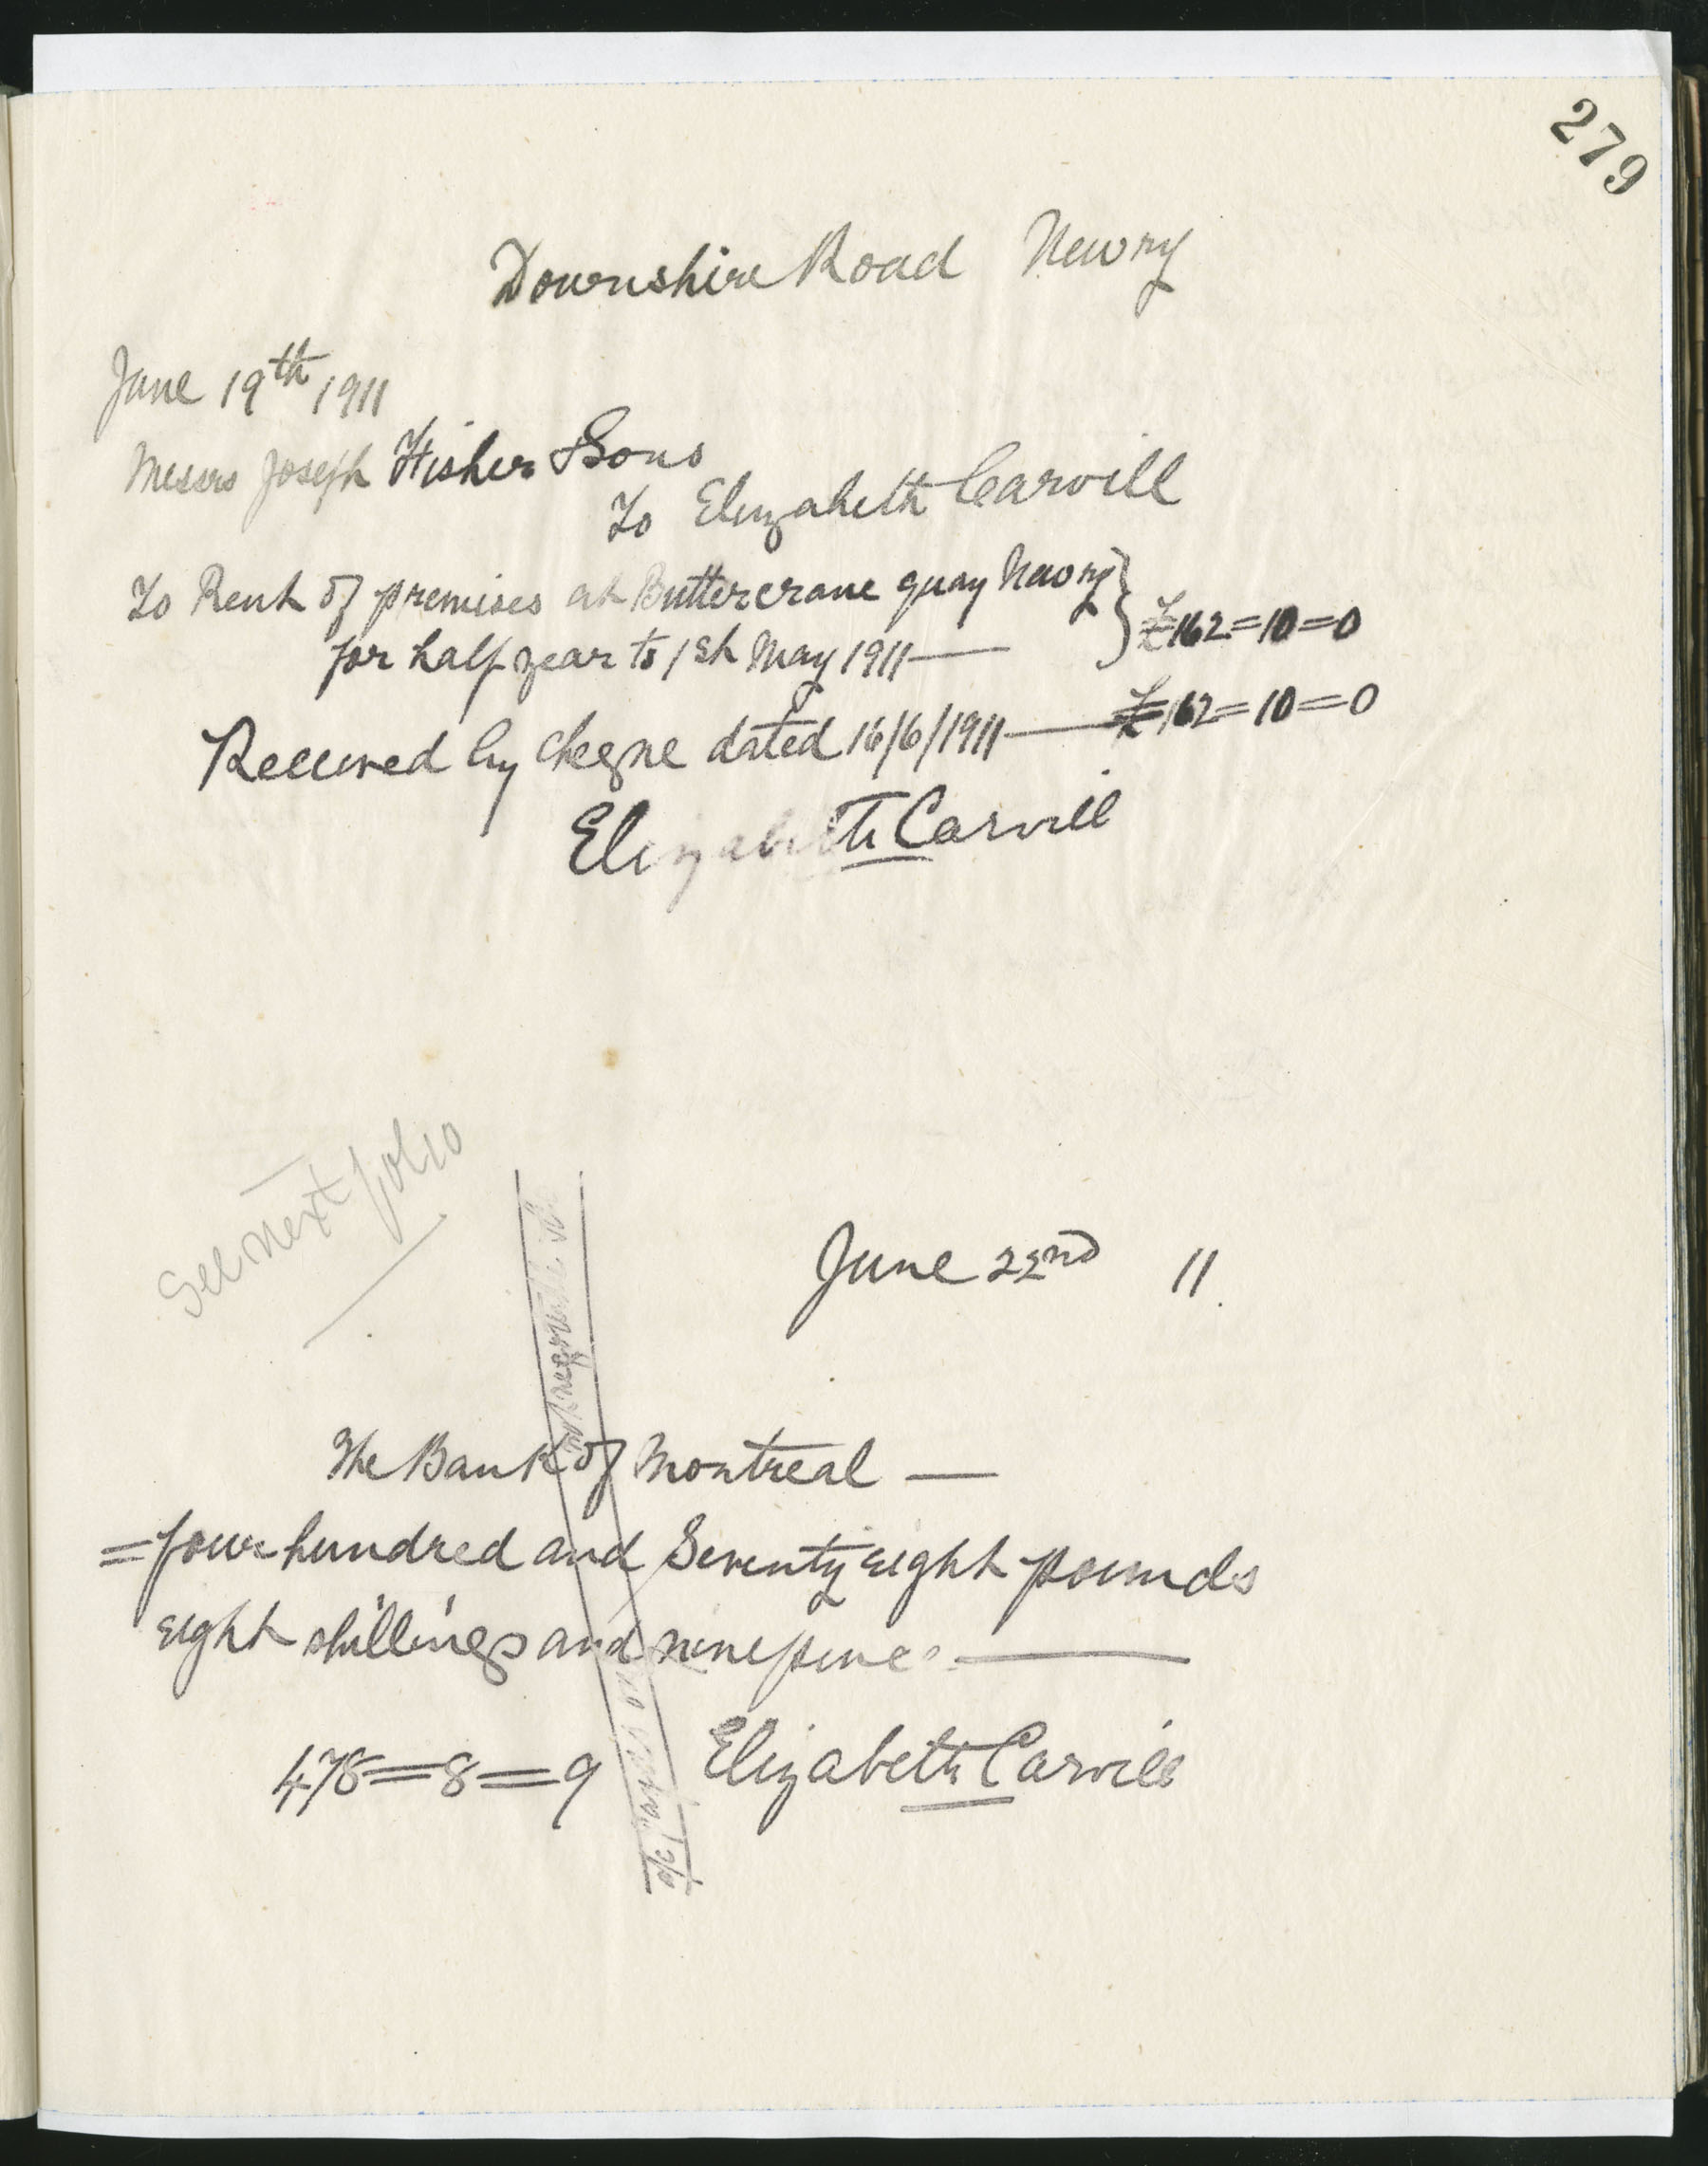 279
Downshire Road Newry
June 19th 1911
Messrs Joseph Fisher & Sons
To Elizabeth Carvill
To Rent of premises at Buttercrane quay Newry
for half year to 1st May 1911 — } £162=10=0
Received by cheque dated 16/6/1911 — £162=10=0
Elizabeth Carvill
See next folio
June 22nd 11.
not negotiable
The Bank of Montreal —
=four hundred and Seventy eight pounds
eight shillings and ninepence —
478=8=9
Elizabeth Carvill
a/c payee